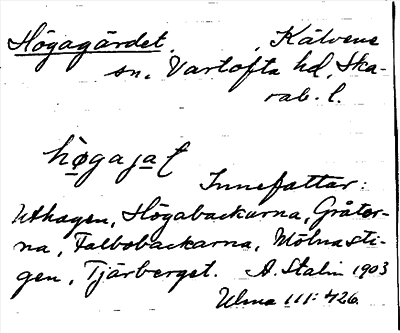 Högagärdet. , Kälvene
sn. Vartofta hd, Ska-
rab. l.
högajaṯ
Innefattar:
Uthagen, Högabackarna, Gråtor-
na, Falbobackarna, Mölnasti-
gen, Tjärberget. A. Stalin 1903
Ulma 111: 426.